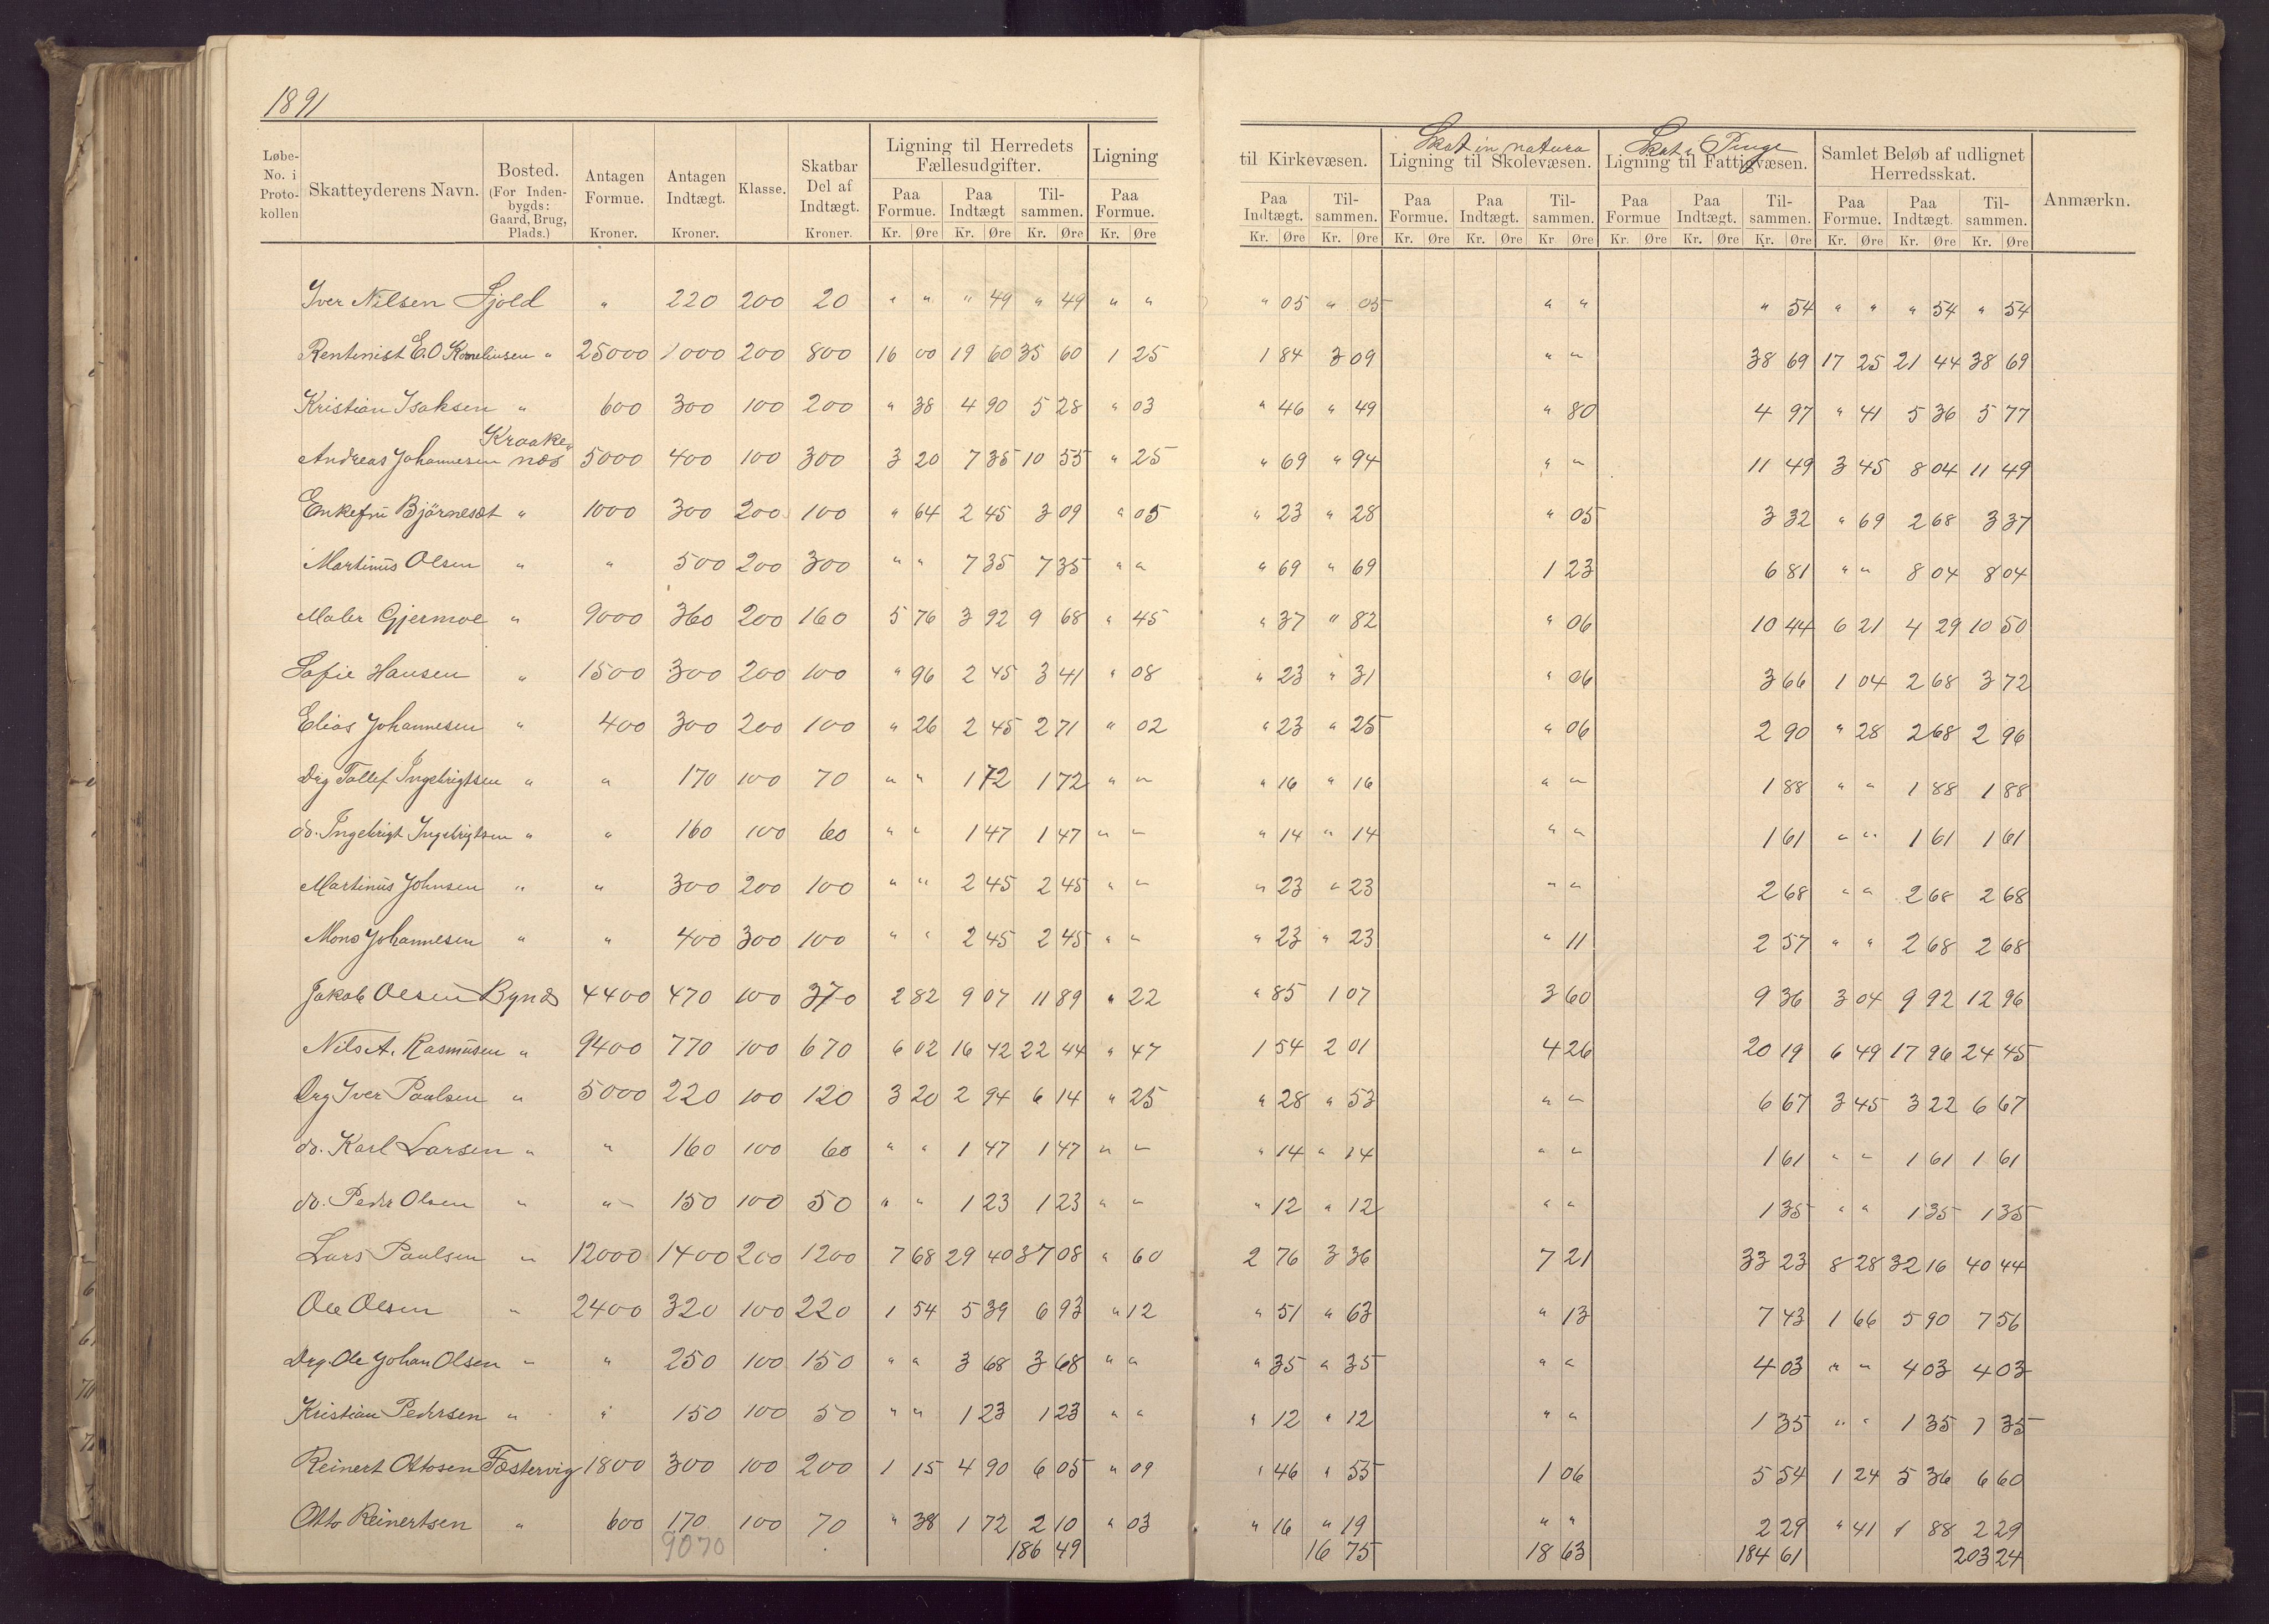 1891
Løbe-No. i Protokollen | Skatteyderens Navn. | Bosted. (For Indenbygds: Gaard, Brug, Plads.) | Antagen Formue. Kroner. | Antagen Indtægt. Kroner. | Klasse. | Skatbar Del af Indtægt. Kroner. | Ligning til Herredets Fællesudgifter. Paa Formue. Kr. Øre | Paa Indtægt Kr. Øre | Tilsammen. Kr. Øre | Ligning Paa Formue. Kr. Øre | til Kirkevæsen. Paa Indtægt. Kr. Øre | Tilsammen. Kr. Øre | Skat in natura Ligning til Skolevæsen. Paa Formue. Kr. Øre | Paa Indtægt. Kr. Øre | Tilsammen. Kr Øre | Skat i Penge Ligning til Fattigvæsen. Paa Formue Kr. Øre | Paa Indtægt. Kr. Øre | Tilsammen. Kr. Øre | Samlet Beløb af udlignet Herredsskat. Paa Formue. Kr. Øre | Paa Indtægt. Kr. Øre | Tilsammen. Kr. Øre | Anmærkn.
Iver Nilsen Fjold " 220 200 20 " " " 49 " 49 " " " 05 " 05 " " " 54 " " " 54 " 54
Rentenist E.O Korneliusen " 25000 1000 200 800 16 00 19 60 35 60 1 25 1 84 3 09 " " 38 69 17 25 21 44 38 69
Kristian Isaksen " 600 300 100 200 " 38 4 90 5 28 " 03 " 46 " 49 " 80 4 97 " 41 5 36 5 77
Andreas Johannesen Kraakenæs 5000 400 100 300 3 20 7 35 10 55 " 25 " 69 " 94 " " 11 49 3 45 8 04 11 49
Enkefru Bjørnesæt " 1000 300 200 100 " 64 2 45 3 09 " 05 " 23 " 28 " 05 3 32 " 69 2 68 3 37
Martinus Olsen " " 500 200 300 " " 7 35 7 35 " " " 69 " 69 1 23 6 81 " " 8 04 8 04
Maler Gjermoe " 9000 360 200 160 5 76 3 92 9 68 " 45 " 37 " 82 " 06 10 44 6 21 4 29 10 50
Sofie Hansen " 1500 300 200 100 " 96 2 45 3 41 " 08 " 23 " 31 " 06 3 66 1 04 2 68 3 72
Elias Johannesen " 400 300 200 100 " 26 2 45 2 71 " 02 " 23 " 25 " 06 2 90 " 28 2 68 2 96
Drg Tollef Ingebrigtsen " " 170 100 70 " " 1 72 1 72 " " " 16 " 16 " " 1 88 " " 1 88 1 88
do. Ingebrigt Ingebrigtsen " " 160 100 60 " " 1 47 1 47 " " " 14 " 14 " " 1 61 " " 1 61 1 61
Martinus Johnsen " " 300 200 100 " " 2 45 2 45 " " " 23 " 23 " " 2 68 " " 2 68 2 68
Mons Johannesen " " 400 300 100 " " 2 45 2 45 " " " 23 " 23 " 11 2 57 " " 2 68 2 68
Jakob Olsen Bynæs 4400 470 100 370 2 82 9 07 11 89 " 22 " 85 1 07 3 60 9 36 3 04 9 92 12 96
Nils A. Rasmusen " 9400 770 100 670 6 02 16 42 22 44 " 47 1 54 2 01 4 26 20 19 6 49 17 96 24 45
Drg Iver Paulsen " 5000 220 100 120 3 20 2 94 6 14 " 25 " 28 " 53 " " 6 67 3 45 3 22 6 67
do. Karl Larsen " " 160 100 60 " " 1 47 1 47 " " " 14 " 14 " " 1 61 " " 1 61 1 61
do. Peder Olsen " " 150 100 50 " " 1 23 1 23 " " " 12 " 12 " " 1 35 " " 1 35 1 35
Lars Paulsen " 12000 1400 200 1200 7 68 29 40 37 08 " 60 2 76 3 36 7 21 33 23 8 28 32 16 40 44
Ole Olsen " 2400 320 100 220 1 54 5 39 6 93 " 12 " 51 " 63 " 13 7 43 1 66 5 90 7 56
Drg. Ole Johan Olsen " " 250 100 150 " " 3 68 3 68 " " " 35 " 35 " " 4 03 " " 4 03 4 03
Kristian Pedersen " " 150 100 50 " " 1 23 1 23 " " " 12 " 12 " " 1 35 " " 1 35 1 35
Reinert Ottosen Fæstervig 1800 300 100 200 1 15 4 90 6 05 " 09 " 46 " 55 1 06 5 54 1 24 5 36 6 60
Otto Reinertsen " 600 170 100 70 " 38 1 72 2 10 " 03 " 16 " 19 " " 2 29 " 41 1 88 2 29
9070 186 49 16 75 18 63 184 61 203 24